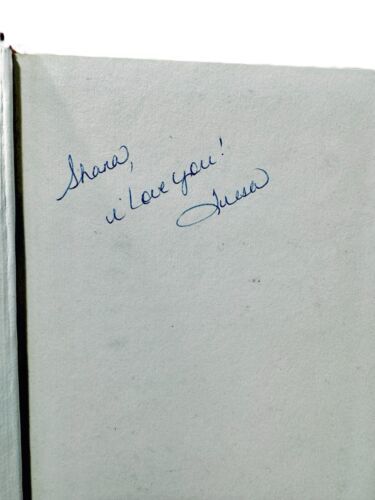 Shana,
i Love you!
Teresa